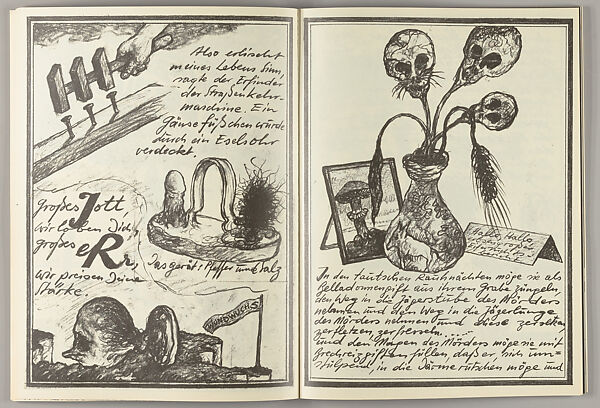 Also erlischt
meines Lebens Sinn,
sagte der Erfinder
der Straßenkehr-
maschine. Ein
Gänsefüßchen wurde
durch ein Eselsohr
verdeckt.
Großes Jott
wir loben Dich,
großes eRr,
wir preisen Deine
Stärke.
Das gerät: Pfeffer und Salz
Hallo, Hallo,
In den teutschen Rauhnächten möge sie als
Belladonnengift aus ihrem Grabe züngeln,
den Weg in die Jägerstube des Mörders
nehmen und den Weg in die Jägerlunge
des Mörders nehmen und diese
zerfetzen, zerfressen....
und den Magen des Mörders möge sie mit
füllen, daß er sich um-
stülpend, in die Därme rutschen möge und